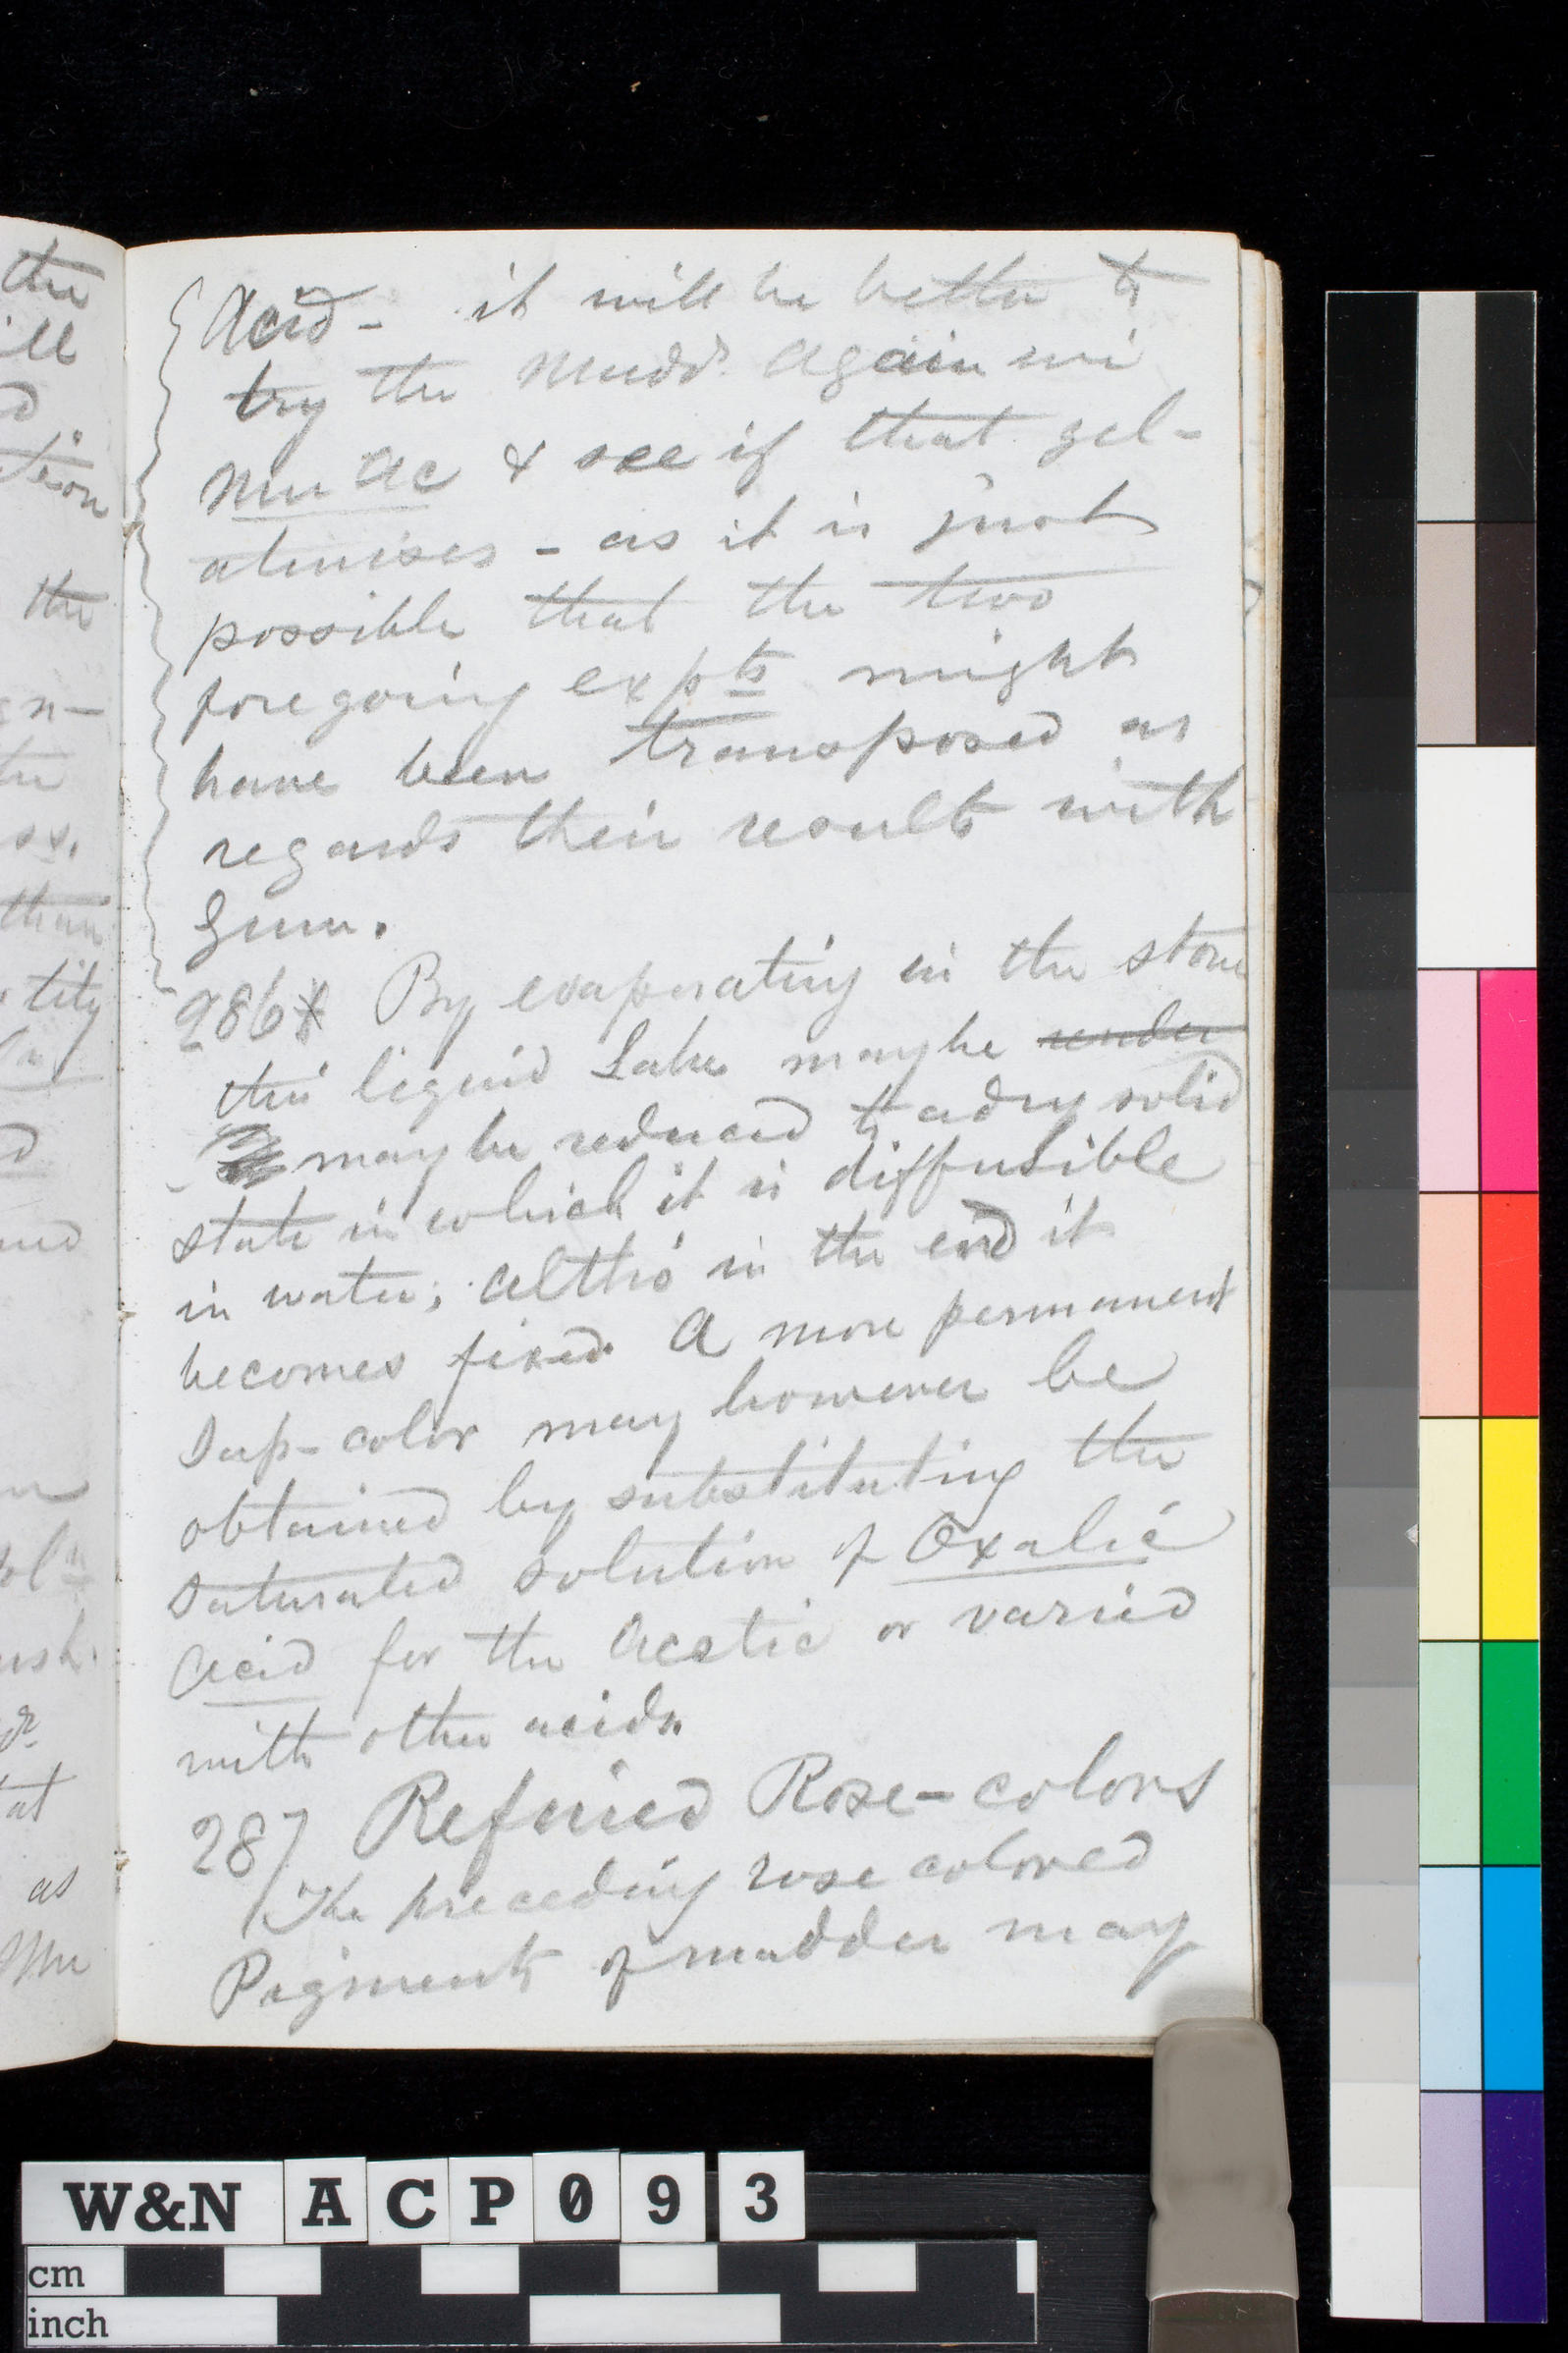 the
ill
tion
the
n-
ss.
than
tity
ush.
at
as
Mu
Acid - it will be better to
try the Mudd^r. again wi
Mu Ac & see if that gel-
atinises - as it is just
possible that the two
foregoing expts might
have been transposed as
regards their results with
Gum.
286 By evaporating in the stove
this liquid Lake may be render
may be reduced to a dry solid
state in which it is diffusible
in water; altho' in the end it
becomes fixed. A more permanent
Sap-color may however be
obtained by substituting the
saturated solution of Oxalic
Acid for the Acetic or varied
with other acids.
287 Refined Rose-colors
The preceding rose colored
Pigments of madder may
W&N ACP093
cm
inch